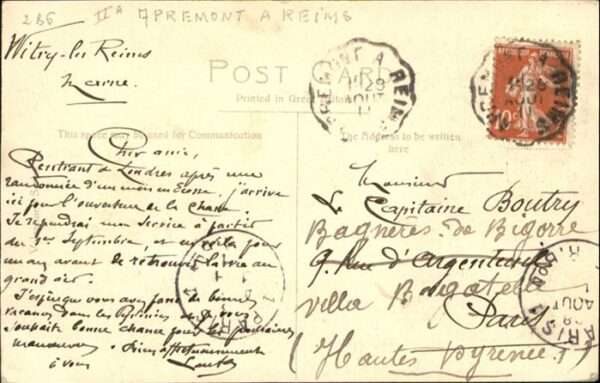 286 IIA APREMONT A REIMS
Witry-les Reims
Marne
POST CARD
Printed in Great
This space may be used for Communication
The Address to be written
here
APREMONT A REIMS
1° 29
AOUT
11
APREMONT A REIMS
1° 28
AOUT
10c
Cher ami,
Rentrant de Londres après une
randonnée d'un mois en Ecosse, j'arrive
ici pour l'ouverture de la chasse.
Je reprendrai mon service à partir
du 1er Septembre, et en voilà pour
un an avant de retrouver la vie au
grand air.
J'espère que vous avez passé de bonnes
vacances dans les Pyrénées et je vous
souhaite bonne chance pour les prochaines
manoeuvres. Bien affectueusement
à vous
Monsieur
Le Capitaine Boutry
Bagnères de Bigorre
9. Rue d'Argenteuil
villa Bagatelle
Paris
(Hautes Pyrénées)
PARIS
AOUT